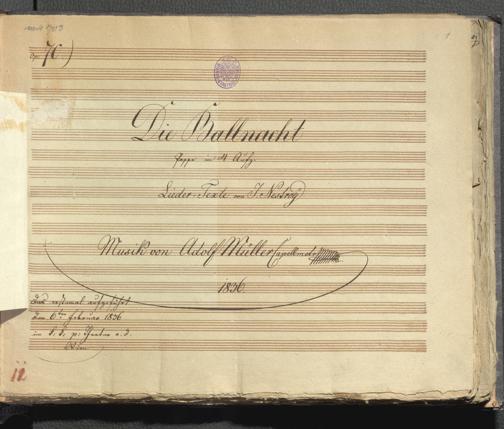 70)
Die Ballnacht
Posse in 4 Aufz.
Lieder-Texte von J. Nestroy
Musik von Adolf Müller Capellmstr
1836.
Zum erstenmal aufgeführt
den 6ten Februar 1836
im k. k. p. Theater a. d.
Wien
12